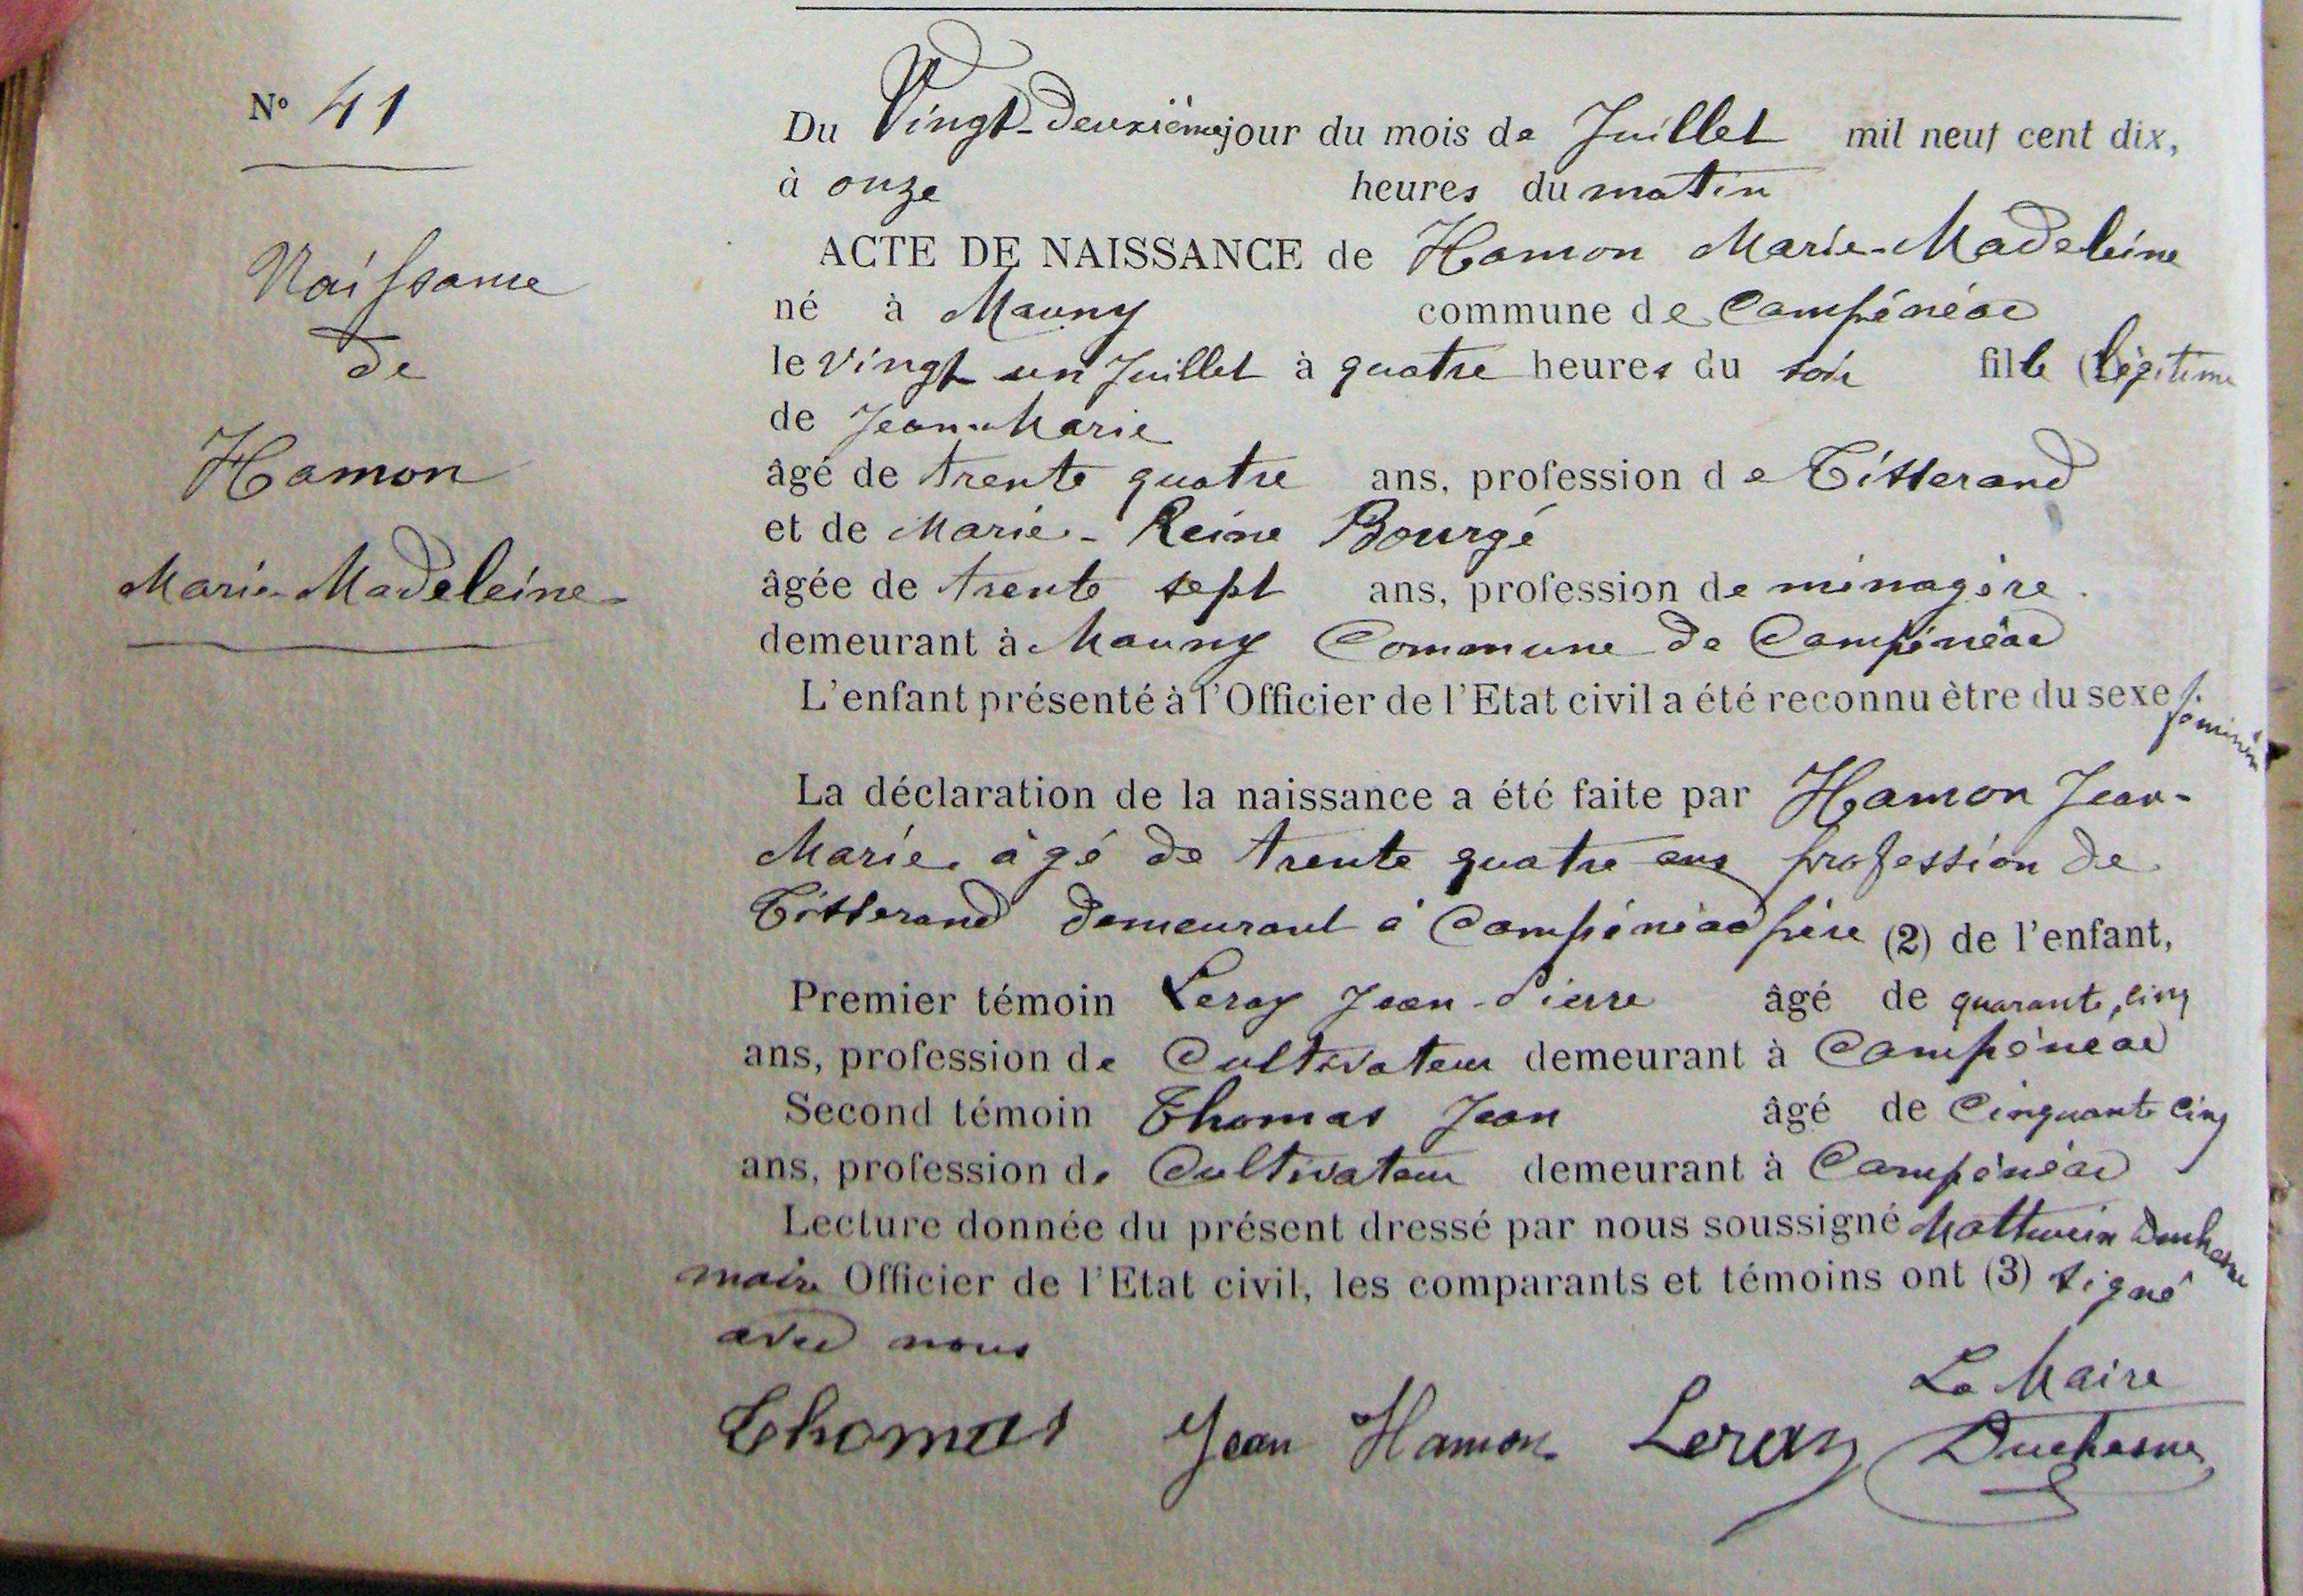 N° 41
Naissance
de
Hamon
Marie-Madeleine
Du Vingt-deuxième jour du mois de Juillet mil neuf cent dix,
à onze heures du matin
ACTE DE NAISSANCE de Hamon Marie-Madeleine
né à Mauny commune de Campénéac
le vingt un Juillet à quatre heures du soir fille (légitime
de Jean-Marie
âgé de trente quatre ans, profession de Tisserand
et de Marie-Reine Bourgé
âgée de trente sept ans, profession de ménagère.
demeurant à Mauny Commune de Campénéac
L'enfant présenté à l'Officier de l'Etat civil a été reconnu être du sexe féminin
La déclaration de la naissance a été faite par Hamon Jean-
Marie âgé de trente quatre ans profession de
Tisserand demeurant à Campénéac père (2) de l'enfant,
Premier témoin Leray Jean-Pierre âgé de quarante cinq
ans, profession de Cultivateur demeurant à Campénéac
Second témoin Thomas Jean âgé de Cinquante cinq
ans, profession de Cultivateur demeurant à Campénéac
Lecture donnée du présent dressé par nous soussigné Mathurin Duchesne
maire Officier de l'Etat civil, les comparants et témoins ont (3) signé
avec nous
Le Maire
Thomas Jean Hamon Leray Duchesne